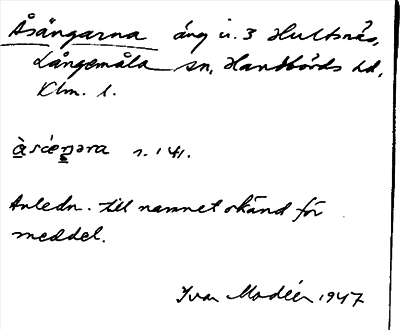 Åsängarna äng i n. 3 Hultsnäs,
Långemåla sn, Handbörds hd,
Klm. l.
s. 141.
Anledn. till namnet okänd för
meddel.
Ivar Modéer 1947